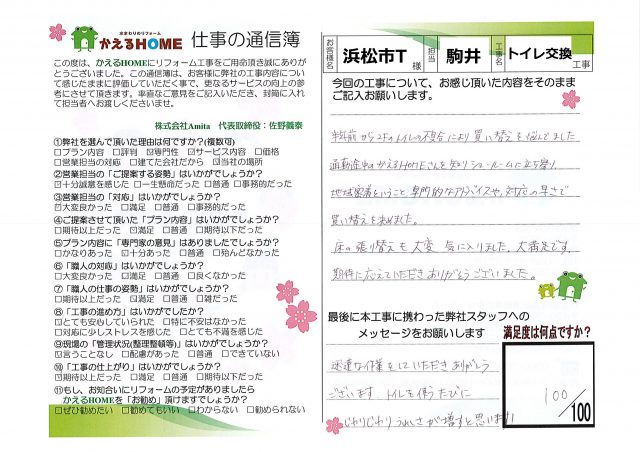 水まわりのリフォーム
かえるHOME 仕事の通信簿
この度は、かえるHOMEにリフォーム工事をご用命頂き誠にありが
とうございました。この通信簿は、お客様に弊社の工事内容につい
て感じたままに評価していただく事で、更なるサービスの向上の参
考にさせて頂きます。率直なご意見をご記入いただき、封筒に入れ
て担当者へお渡しくださいませ。
株式会社Amita 代表取締役：佐野義泰
①弊社を選んで頂いた理由は何ですか?(複数可)
□プラン内容 □評判 ☑専門性 ☑サービス内容 □価格
□営業担当の対応 □建てた会社だから ☑当社の場所
②営業担当の「ご提案する姿勢」はいかがでしょうか?
☑十分誠意を感じた □一生懸命だった □普通 □事務的だった
③営業担当の「対応」はいかがでしょうか?
☑大変良かった □満足 □普通 □事務的だった
④ご提案させて頂いた「プラン内容」はいかがでしょうか?
□期待以上だった ☑満足 □普通 □期待以下だった
⑤プラン内容に「専門家の意見」はありましたでしょうか?
□かなりあった ☑十分あった □普通 □殆んどなかった
⑥「職人の対応」はいかがでしょうか?
□大変良かった ☑満足 □普通 □良くなかった
⑦「職人の仕事の姿勢」はいかがでしょうか?
□期待以上だった ☑満足 □普通 □雑だった
⑧「工事の進め方」はいかがでしたか?
☑とても安心していられた □特に不安はなかった
□対応に少しストレスを感じた □とても不満を感じた
⑨現場の「管理状況(整理整頓等)」はいかがでしょうか?
☑言うことなし □配慮があった □普通 □できていない
⑩「工事の仕上がり」はいかがでしょうか?
☑期待以上だった □満足 □普通 □期待以下だった
⑪もし、お知合いにリフォームの予定がありましたら
かえるHOMEを「お勧め」頂けますでしょうか?
□ぜひ勧めたい □勧めてもいい □わからない □勧められない
お客様名 浜松市T 様 担当 駒井 工事名 トイレ交換 工事
今回の工事について、お感じ頂いた内容をそのまま
ご記入お願いします。
半年前から2Fのトイレの不具合により買い替えを悩んでました
通勤途中のかえるHOMEさんを知りショールームに立ち寄り、
地域密着ということ専門的なアドバイスや、対応の早さで
買い替えを決めました。
床の張り替えも大変気に入りました。大満足です。
期待に応えていただきありがとうございました。
最後に本工事に携わった弊社スタッフへの
メッセージをお願いします
迅速な作業をしていただきありがとう
ございます トイレを使うたびに
じわりじわりうれしさが増すと思います!
満足度は何点ですか?
100/100